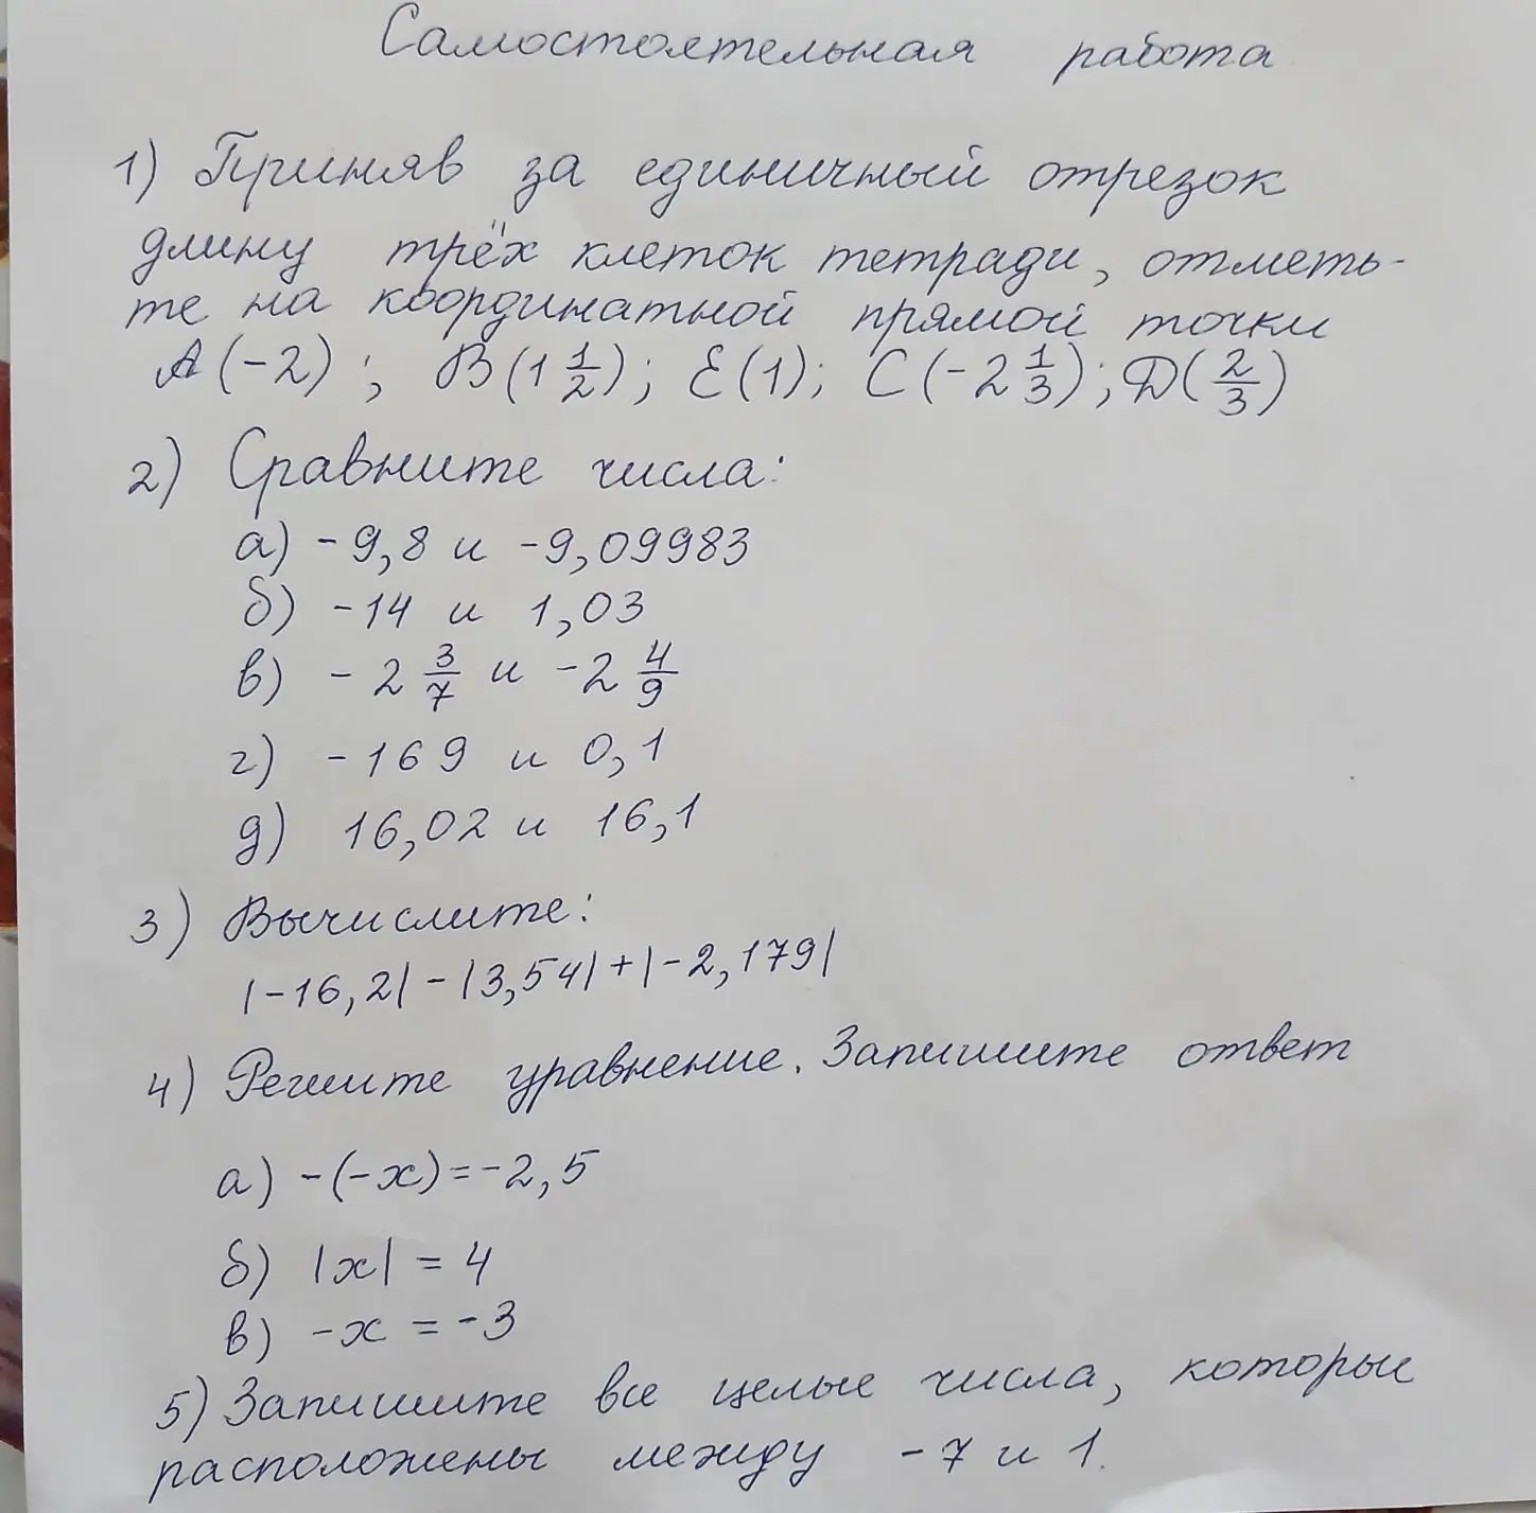 Самостоятельная работа
1) Приняв за единичный отрезок
длину трёх клеток тетради, отметь-
те на координатной прямой точки
A(-2); B(1 1/2); E(1); C(-2 1/3); D(2/3)
2) Сравните числа:
а) -9,8 и -9,09983
б) -14 и 1,03
в) -2 3/7 и -2 4/9
г) -169 и 0,1
д) 16,02 и 16,1
3) Вычислите:
|-16,2| - |3,54| + |-2,179|
4) Решите уравнение. Запишите ответ
а) -(-x) = -2,5
б) |x| = 4
в) -x = -3
5) Запишите все целые числа, которые
расположены между -7 и 1.